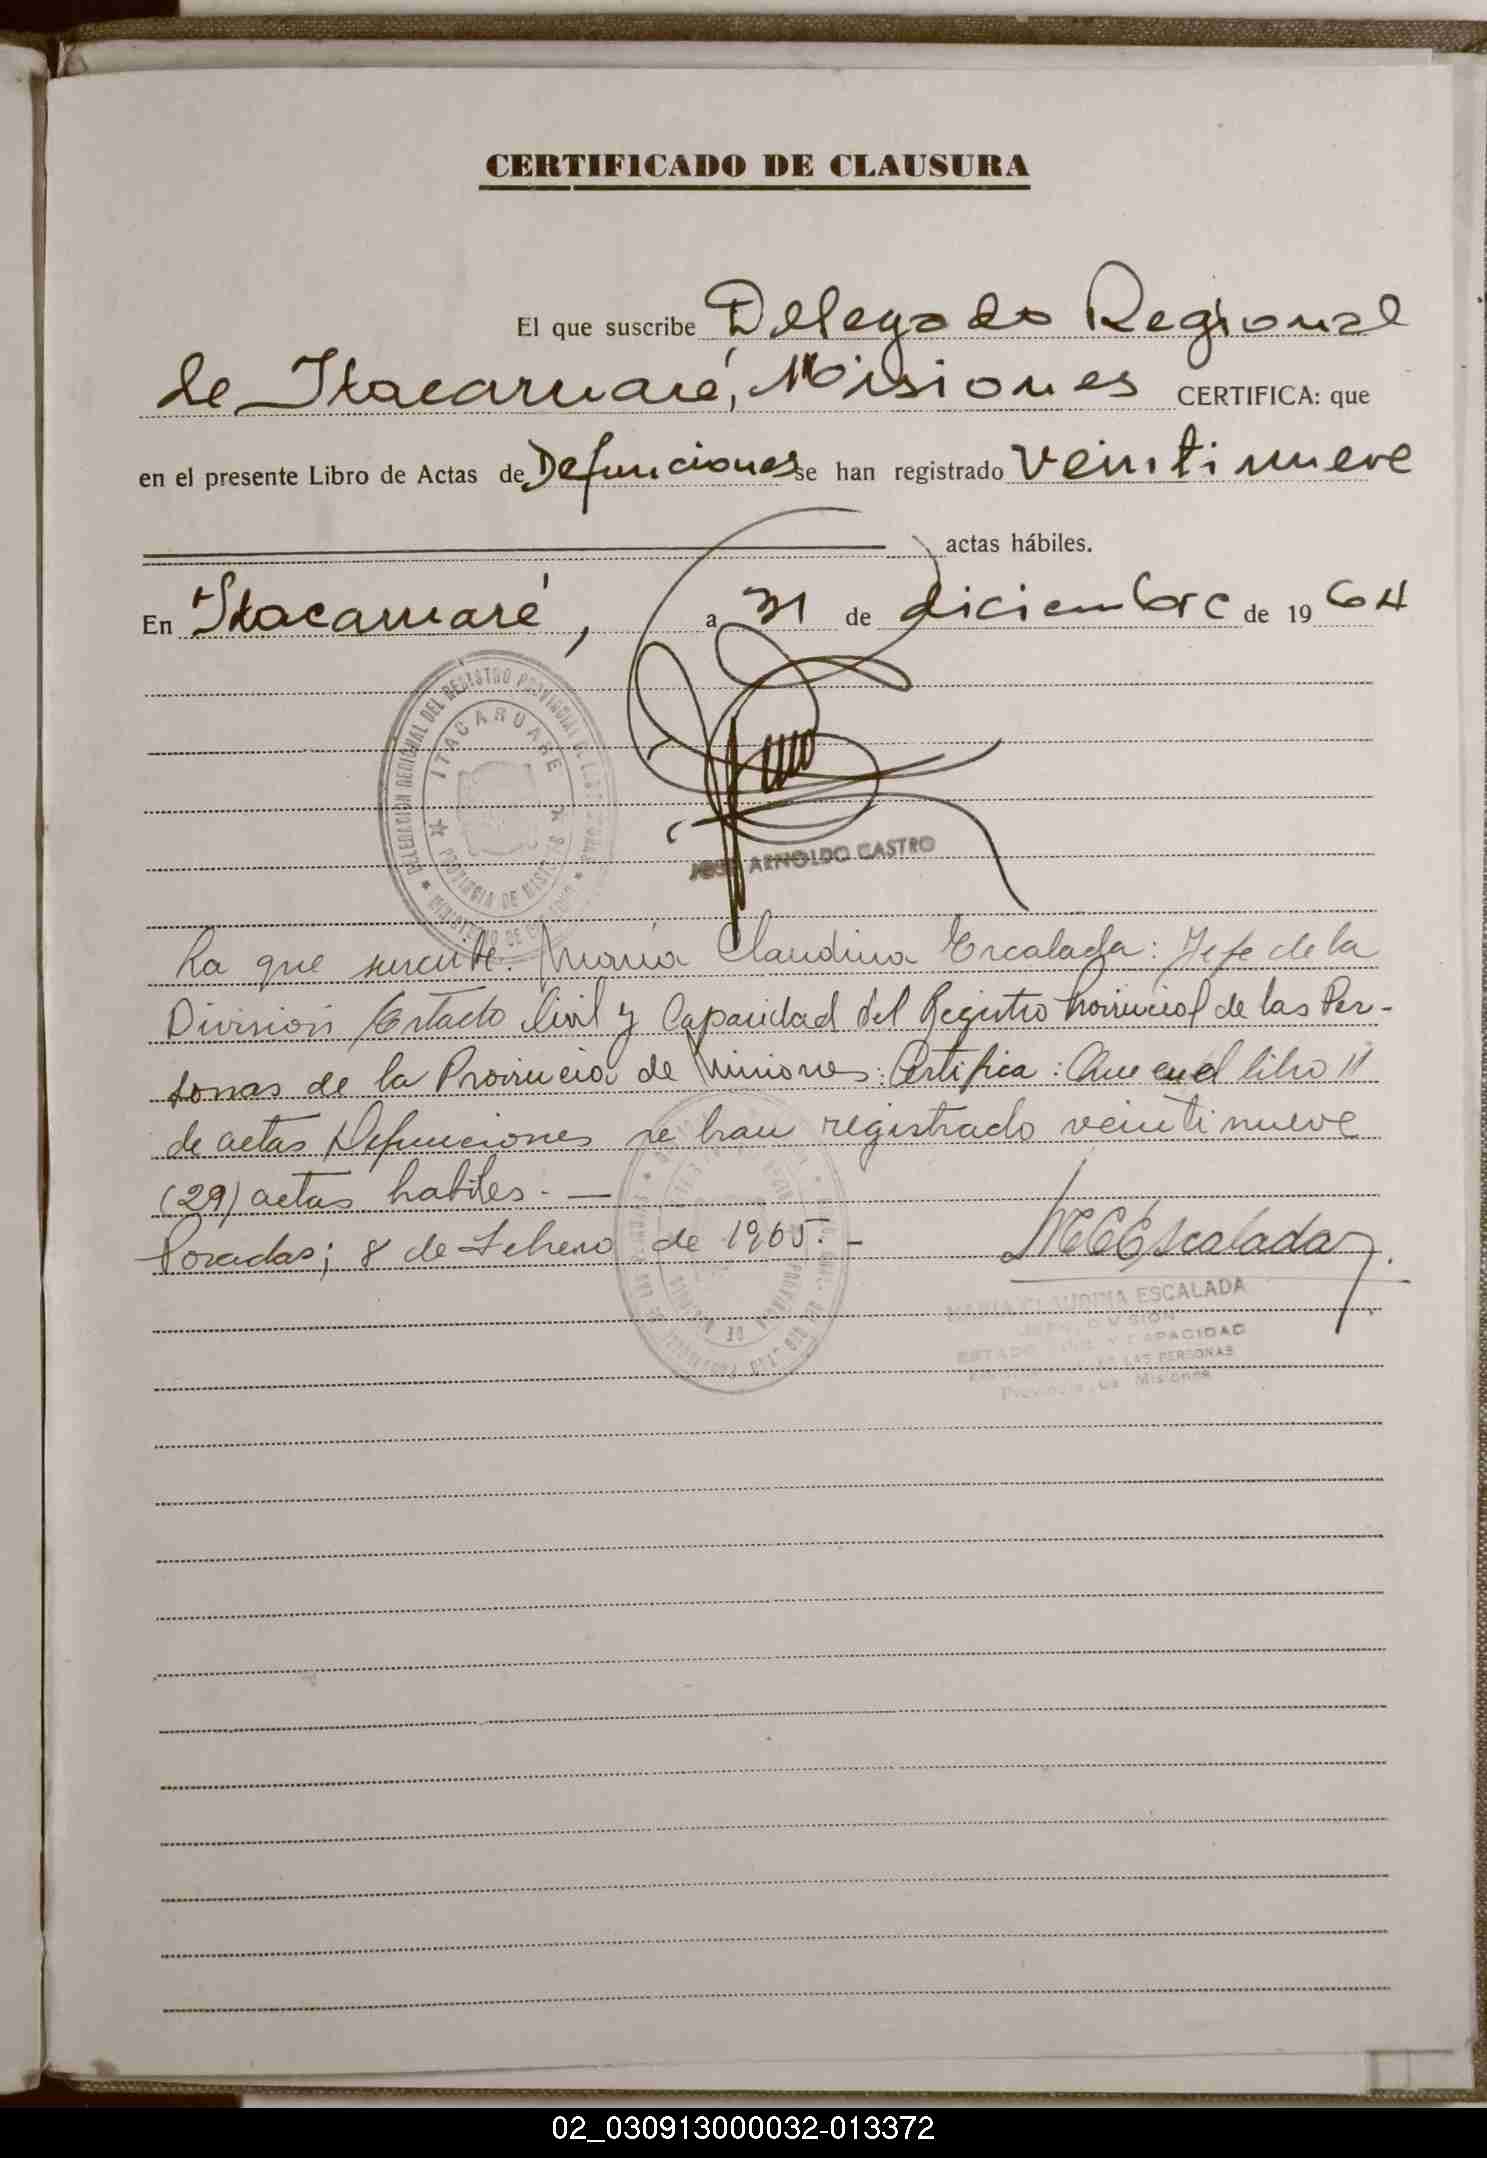 CERTIFICADO DE CLAUSURA
El que suscribe Delegado Regional
de Itacaruaré, Misiones CERTIFICA: que
en el presente Libro de Actas de Defunciones se han registrado veintinueve
actas hábiles.
En Itacaruaré, a 31 de diciembre de 1964
DELEGACION REGIONAL DEL REGISTRO PROVINCIAL DE LAS
ITACARUARE
PROVINCIA DE MISIONES
JOSE ARNOLDO CASTRO
La que suscribe: María Claudina Escalada: Jefe de la
División Estado Civil y Capacidad del Registro Provincial de las Per-
sonas de la Provincia de Misiones: Certifica: Que en el libro 11
de actas Defunciones se han registrado veintinueve
(29) actas habiles. —
Posadas; 8 de Febrero de 1965. -
MCEscalada
MARIA CLAUDINA ESCALADA
JEFA DIVISION
ESTADO CIVIL Y CAPACIDAD
DE LAS PERSONAS
Provincia de Misiones
02_030913000032-013372